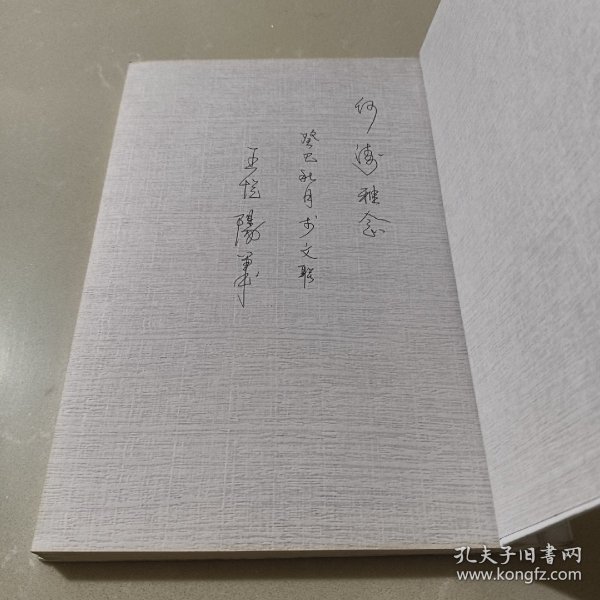 何涛雅念
癸巳秋月于文联
王恺
阳笔
孔夫子旧书网
www.kongfz.com